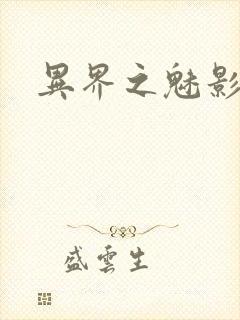 異界之魅影
盛雲生